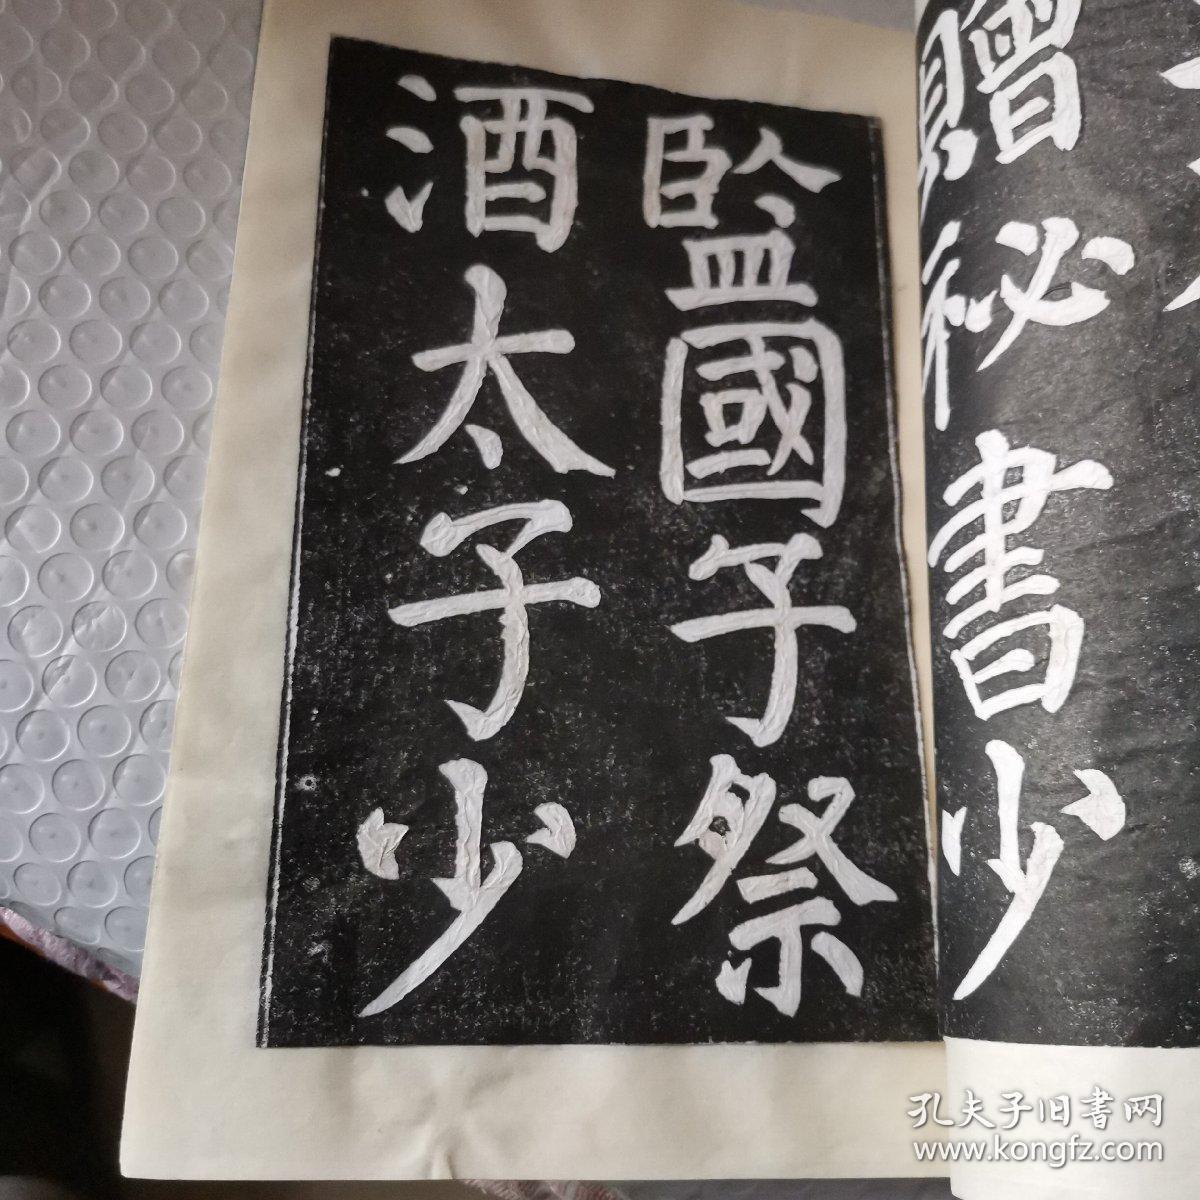 贈祕書少
監國子祭
酒太子少
孔夫子旧书网
www.kongfz.com